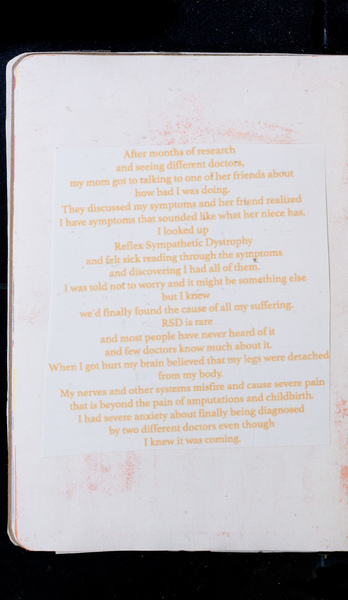 After months of research
and seeing different doctors,
my mom got to talking to one of her friends about
how bad I was doing.
They discussed my symptoms and her friend realized
I have symptoms that sounded like what her niece has.
I looked up
Reflex Sympathetic Dystrophy
and felt sick reading through the symptoms
and discovering I had all of them.
I was told not to worry and it might be something else
but I knew
we'd finally found the cause of all my suffering.
RSD is rare
and most people have never heard of it
and few doctors know much about it.
When I got hurt my brain believed that my legs were detached
from my body.
My nerves and other systems misfire and cause severe pain
that is beyond the pain of amputations and childbirth.
I had severe anxiety about finally being diagnosed
by two different doctors even though
I knew it was coming.